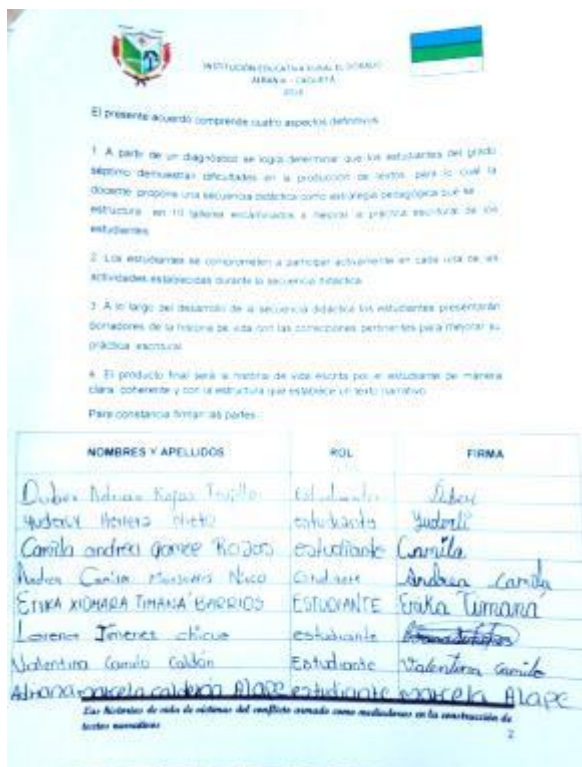 INSTITUCIÓN EDUCATIVA RURAL EL DORADO
ALBANIA - CAQUETÁ
El presente acuerdo comprende cuatro aspectos definitivos
1. A partir de un diagnóstico se logra determinar que los estudiantes del grado
séptimo demuestran dificultades en la producción de textos, para lo cual la
docente propone una secuencia didáctica como estrategia pedagógica que se
estructura en 10 talleres encaminados a mejorar la práctica escritural de los
estudiantes
2. Los estudiantes se comprometen a participar activamente en cada una de las
actividades establecidas durante la secuencia didáctica
3. A lo largo del desarrollo de la secuencia didáctica los estudiantes presentarán
borradores de la historia de vida con las correcciones pertinentes para mejorar su
práctica escritural
4. El producto final será la historia de vida escrita por el estudiante de manera
clara, coherente y con la estructura que establece un texto narrativo
Para constancia firman las partes
NOMBRES Y APELLIDOS ROL FIRMA
Duber Adrian Rojas Trujillo Estudiante Duber
Yuderly Herrera Nieto estudiante Yuderli
Camila andrea gomez Rojas estudiante Camila
Andrea Camila Nieto Estudiante Andrea Camila
ERIKA XIOMARA TIMANÁ BARRIOS ESTUDIANTE Erika Timaná
Lorena Jimenez chicue estudiante
Valentina Camilo Caldón Estudiante Valentina Camilo
Adriana marcela calderón Alape estudiante marcela Alape
Las historias de vida de víctimas del conflicto armado como mediadoras en la construcción de
textos narrativos
2